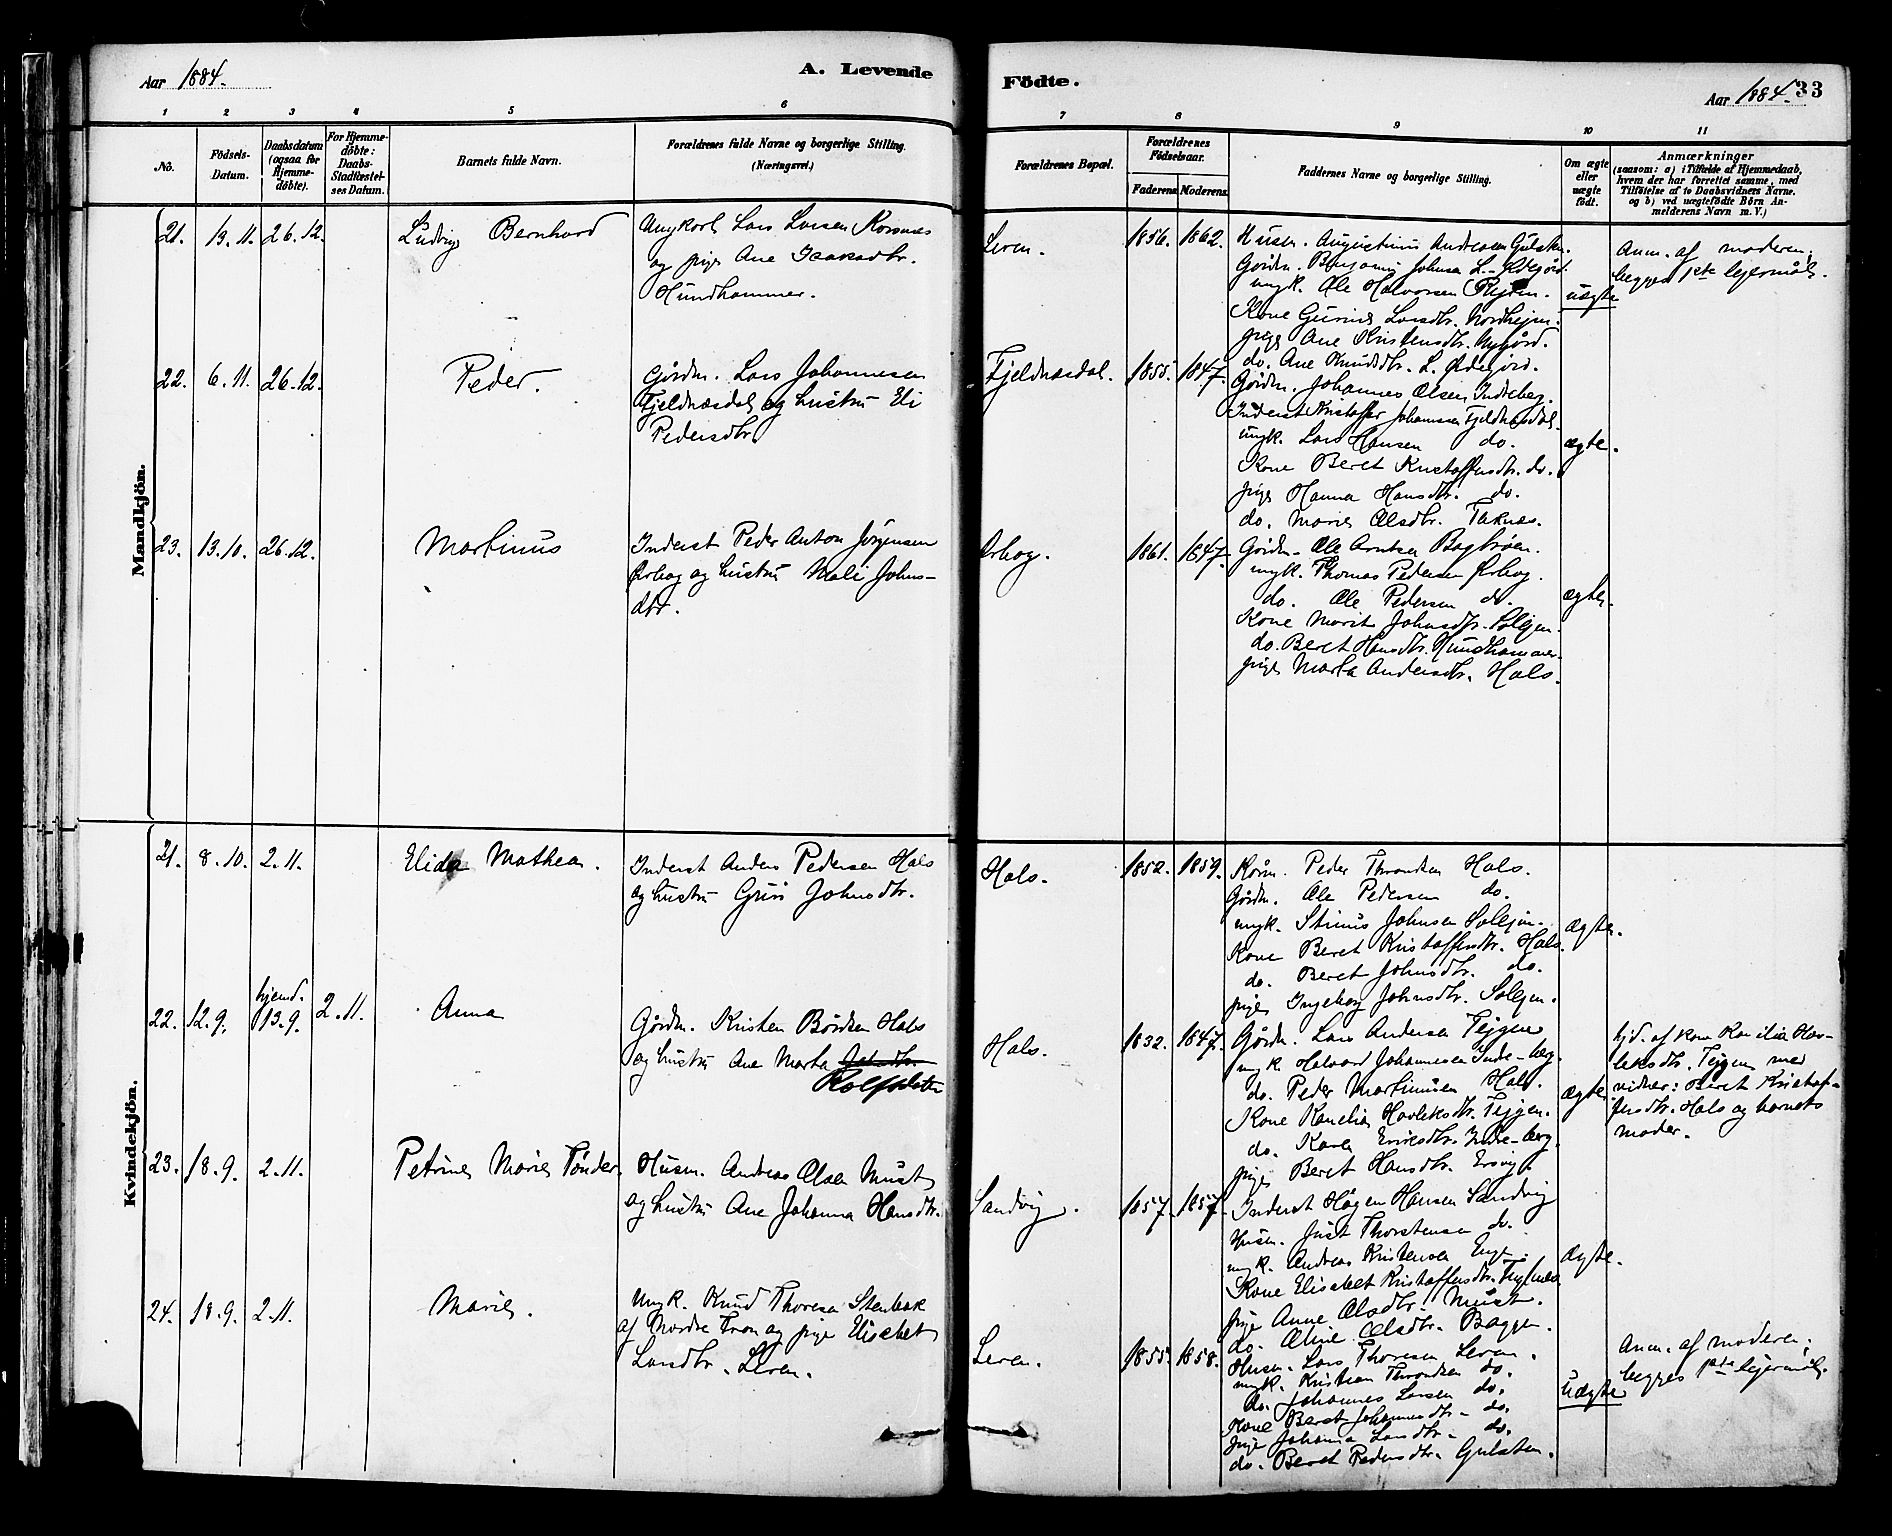 Aar 1884.
A. Levende
Födte.
Aar 1884.
33
1 2 3 4 5 6 7 8 9 10 11
No.
Födsels-
Datum.
Daabsdatum
(ogsaa for
Hjemme-
döbte).
For Hjemme-
döbte:
Daabs-
Stadfæstel-
ses Datum.
Barnets fulde Navn.
Forældrenes fulde Navne og borgerlige Stilling.
(Næringsvei.)
Forældrenes Bopæl.
Forældrenes
Födselsaar.
Faderens. Moderens.
Faddernes Navne og borgerlige Stilling.
Om ægte
eller
uægte
födt.
Anmærkninger
(saasom: a) i Tilfælde af Hjemmedaab,
hvem der har forrettet samme, med
Tilföielse af to Daabsvidners Navne,
og b) ved uægtefödte Börn An-
melderens Navn m. V.)
Mandkjön.
21. 13.11. 26.12.
Ludvig Bernhard
Ungkarl Lars Larsen Korsnes
og pige Ane Isaksdtr.
Hundhammer.
Leren.
1856. 1862.
Husm. Augustinus Andreasen Gulsten.
Gårdm. Benjamin Johnsen L. Ødegård.
ungk. Ole Halvorsen
Kone Gurine Larsdtr.
pige Ane Kristensdtr. Nygård.
do. Ane Knudsdtr. L. Ødegård.
uægte
Anm. af moderen;
begges 1ste lejermål.
22. 6.11. 26.12.
Peder.
Gårdm. Lars Johannesen
Fjeldnæsdal og hustru Eli
Pedersdtr
Fjeldnæsdal.
1855. 1847.
Gårdm. Johannes Olsen Indreberg.
Inderst Kristoffer Johannesen Fjeldnæsdal.
ungk. Lars Hansen do.
Kone Beret Kristoffersdtr. do.
pige Hanna Hansdtr. do.
do. Marie Olsdtr. Taknæs.
ægte.
23. 13.10. 26.12.
Martinus
Inderst Peder Anton Jørgensen
Ørbog og hustru Mali Johns-
dtr.
Ørbog.
1861. 1847.
Gårdm. Ole Arntsen Bagbrøen.
ungk. Thomas Pedersen Ørbog.
do. Ole Pedersen do.
Kone Marit Johnsdtr. Solejen.
do. Beret Hansdtr. Hundhammer.
pige Marta Andersdtr. Hals.
ægte.
Kvindekjön.
21. 8.10. 2.11.
Elida Mathea.
Inderst Anders Pedersen Hals
og hustru Guri Johnsdtr.
Hals.
1852. 1859.
Kårm. Peder Throndsen Hals.
Gårdm. Ole Pedersen do.
ungk. Stinus Johnsen Solejen.
Kone Beret Kristoffersdtr. Hals.
do. Beret Johnsdtr. do.
pige Ingeborg Johnsdtr. Solejen.
ægte.
22. 12.9. hjemd. 13.9. 2.11.
Anna
Gårdm. Kristen Bårdsen Hals
og hustru Ane Marta
Rolfsdatter
Hals.
1832. 1847.
Gårdm. Lars Andersen Tejgen
ungk. Halvard Johannesen Indre-berg.
do. Peder Martinusen Hals.
Kone Kornelia Havleksdtr. Tejgen.
do. Karen Eriksdtr. Indre-berg.
pige Beret Hansdtr. Ersvig.
ægte
hjd. af kone Kornelia Hav-
leksdtr. Tejgen med
vidner: Beret Kristof-
fersdtr. Hals og barnets
moder.
23. 18.9. 2.11.
Petrine Marie Tønder.
Husm. Andreas Olsen Must
og hustru Ane Johanna Hansdtr.
Sandvig.
1857. 1857.
Inderst Hågen Hansen Sandvig
Husm. Just Thorstensen do.
ungk. Andreas Kristensen Enge.
Kone Elisabet Kristoffersdtr.
pige Anne Olsdtr. Must.
do. Oline Olsdtr. Baggen.
ægte.
24. 18.9. 2.11.
Marie.
Ungk. Knud Thoresen Stenbak
af Nordre Fron og pige Elisabet
Larsdtr. Leren.
Leren.
1855. 1858.
Husm. Lars Thoresen Leren.
ungk. Kristian Throndsen do.
do. Johannes Larsen do.
Kone Beret Johannesdtr. do.
pige Johanna Larsdtr. do.
do. Beret Pedersdtr. Gulsten.
uægte
Anm. af moderen;
begges 1ste lejermål.